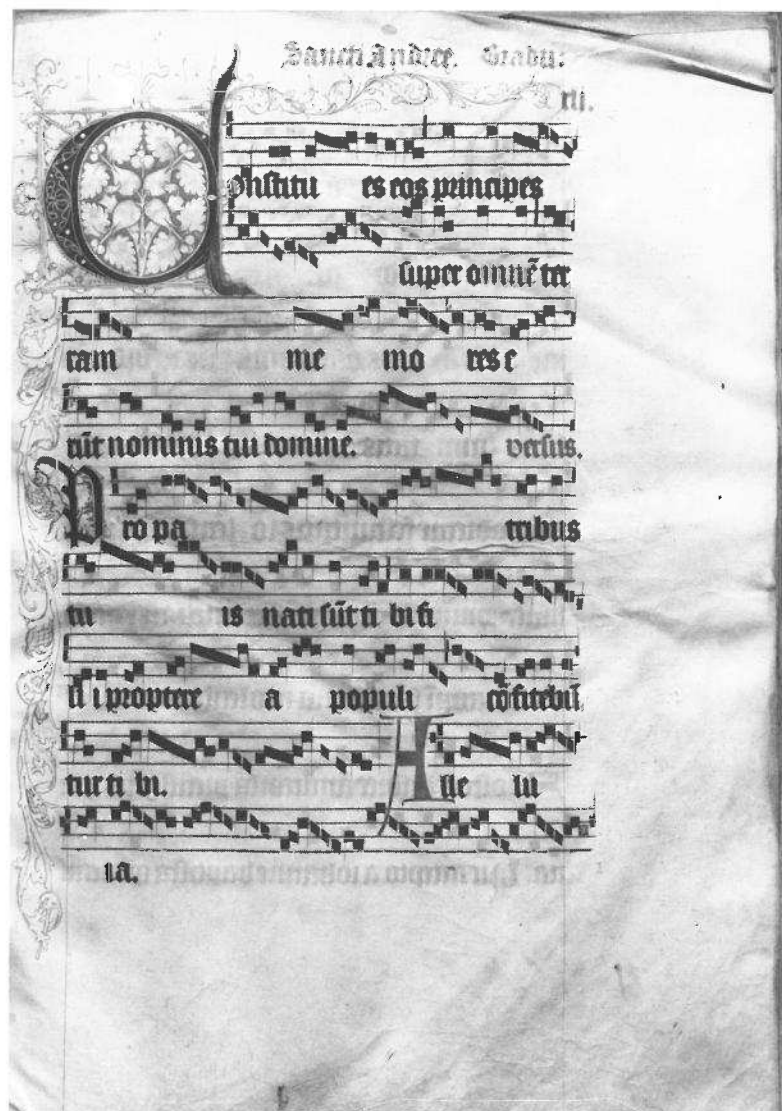 Sancti Andree. Gradu:
xli.
Constitu es eos principes
super omnē ter
ram me mo res e
rūt nominis tui domine. versus.
Pro pa tribus
tu is nati sūt ti bi fi
li i proptere a populi cōfitebū
tur ti bi. Alle lu
ia.